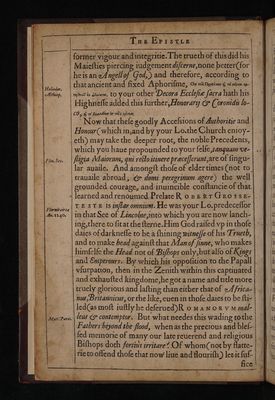 THE EPISTLE
former vigour and integritie. The trueth of this did his
Maiesties piercing iudgement discerne, none better (for
he is an Angell of God,) and therefore, according to
that ancient and fixed Aphorisme,
to your other Decora Ecclesiæ sacra hath his
Highnesse added this further, Honorary & Coronidis lo-
co,
Now that these goodly Accessions of Authoritie and
Honour (which in, and by your Lo. the Church enioy-
eth) may take the deeper root, the noble Precedents,
which you haue propounded to your selfe, tanquam ve-
stigia Maiorum, qui rectò itinere præcesserunt, are of singu-
lar auaile. And amongst those of elder times (not to
trauaile abroad, & domi peregrinum agere) the well
grounded courage, and inuincible constancie of that
learned and renoumed Prelate ROBERT GROSSE-
TESTE is instar omnium. He was your Lo. predecessor
in that See of Lincolne, into which you are now lanch-
ing, there to sit at the sterne. Him God raised vp in those
daies of darknesse to be a shining witnesse of his Trueth,
and to make head against that Man of sinne, who makes
himselfe the Head not of Bishops only, but also of Kings
and Emperours. By which his opposition to the Papall
vsurpation, then in the Zenith within this captiuated
and exhausted kingdome, he got a name and title more
truely glorious and lasting than either that of Africa-
nus, Britannicus, or the like, euen in those daies to be sti-
led (as most iustly he deserued) ROMANORVM mal-
leus & contemptor. But what needes this wading to the
Fathers beyond the flood, when as the precious and bles-
sed memorie of many our late reuerend and religious
Bishops doth fortiùs irritare? Of whom (not by flatte-
rie to offend those that now liue and flourish) let it suf-
fice
Plin. Sec.
Floruit circa
An. 1240.
Matt. Paris.